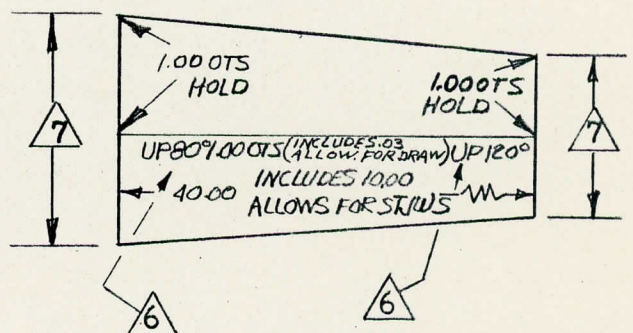 1.00 OTS
HOLD
1.00 OTS
HOLD
7
7
UP 80° 1.00 OTS (INCLUDES .03 ALLOW. FOR DRAW) UP 120°
40.00 INCLUDES 10.00
ALLOWS FOR
6
6